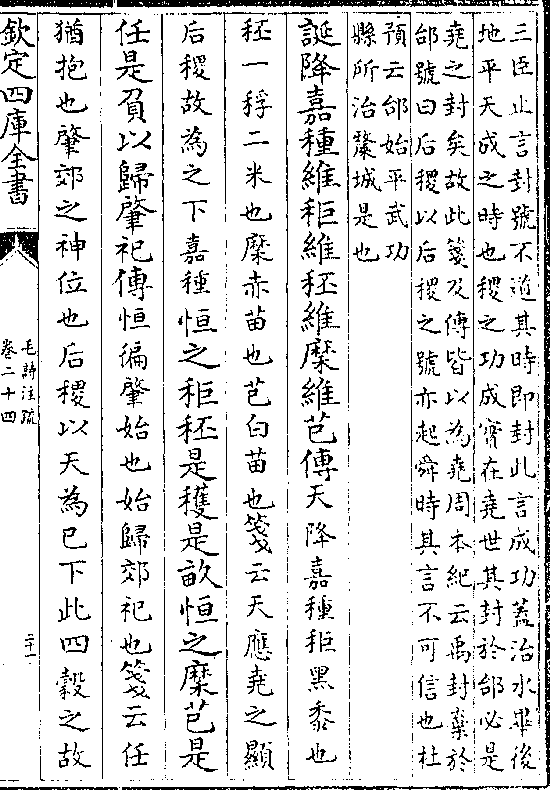 三臣止言封號不道其時即封此言成功蓋治水畢後
地平天成之時也稷之功成實在堯世其封於邰必是
堯之封矣故此箋及傳皆以為堯周本紀云禹封棄於
邰號曰后稷以后稷之號亦起舜時其言不可信也杜
預云邰始平武功
縣所治釐城是也
誕降嘉種維秬維秠維穈維芑傳天降嘉種秬黑黍也
秠一稃二米也穈赤苗也芑白苗也箋云天應堯之顯
后稷故為之下嘉種恒之秬秠是穫是畝恒之穈芑是
任是負以歸肇祀傳恒徧肇始也始歸郊祀也箋云任
猶抱也肇郊之神位也后稷以天為已下此四穀之故
欽定四庫全書
毛詩注疏
卷二十四
二十一